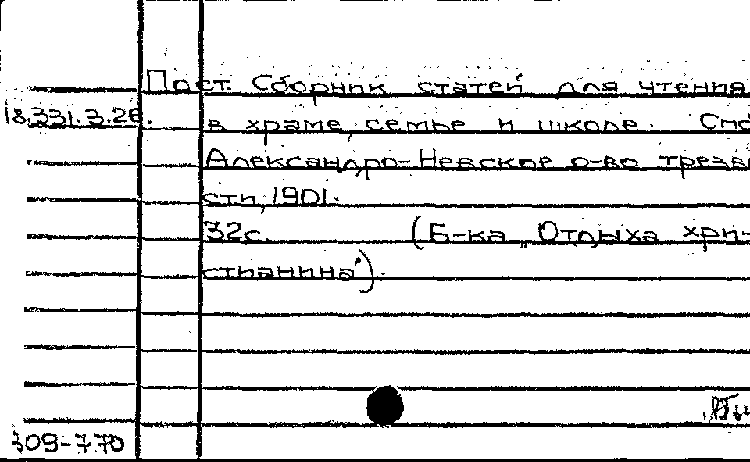 Пост. Сборник статей для чтения
18.331.3.26. в храме, семье и школе. Спб
Александро-Невское о-во трезво
сти, 1901.
32с. (Б-ка „Отдыха хри-
стианина").
309-770